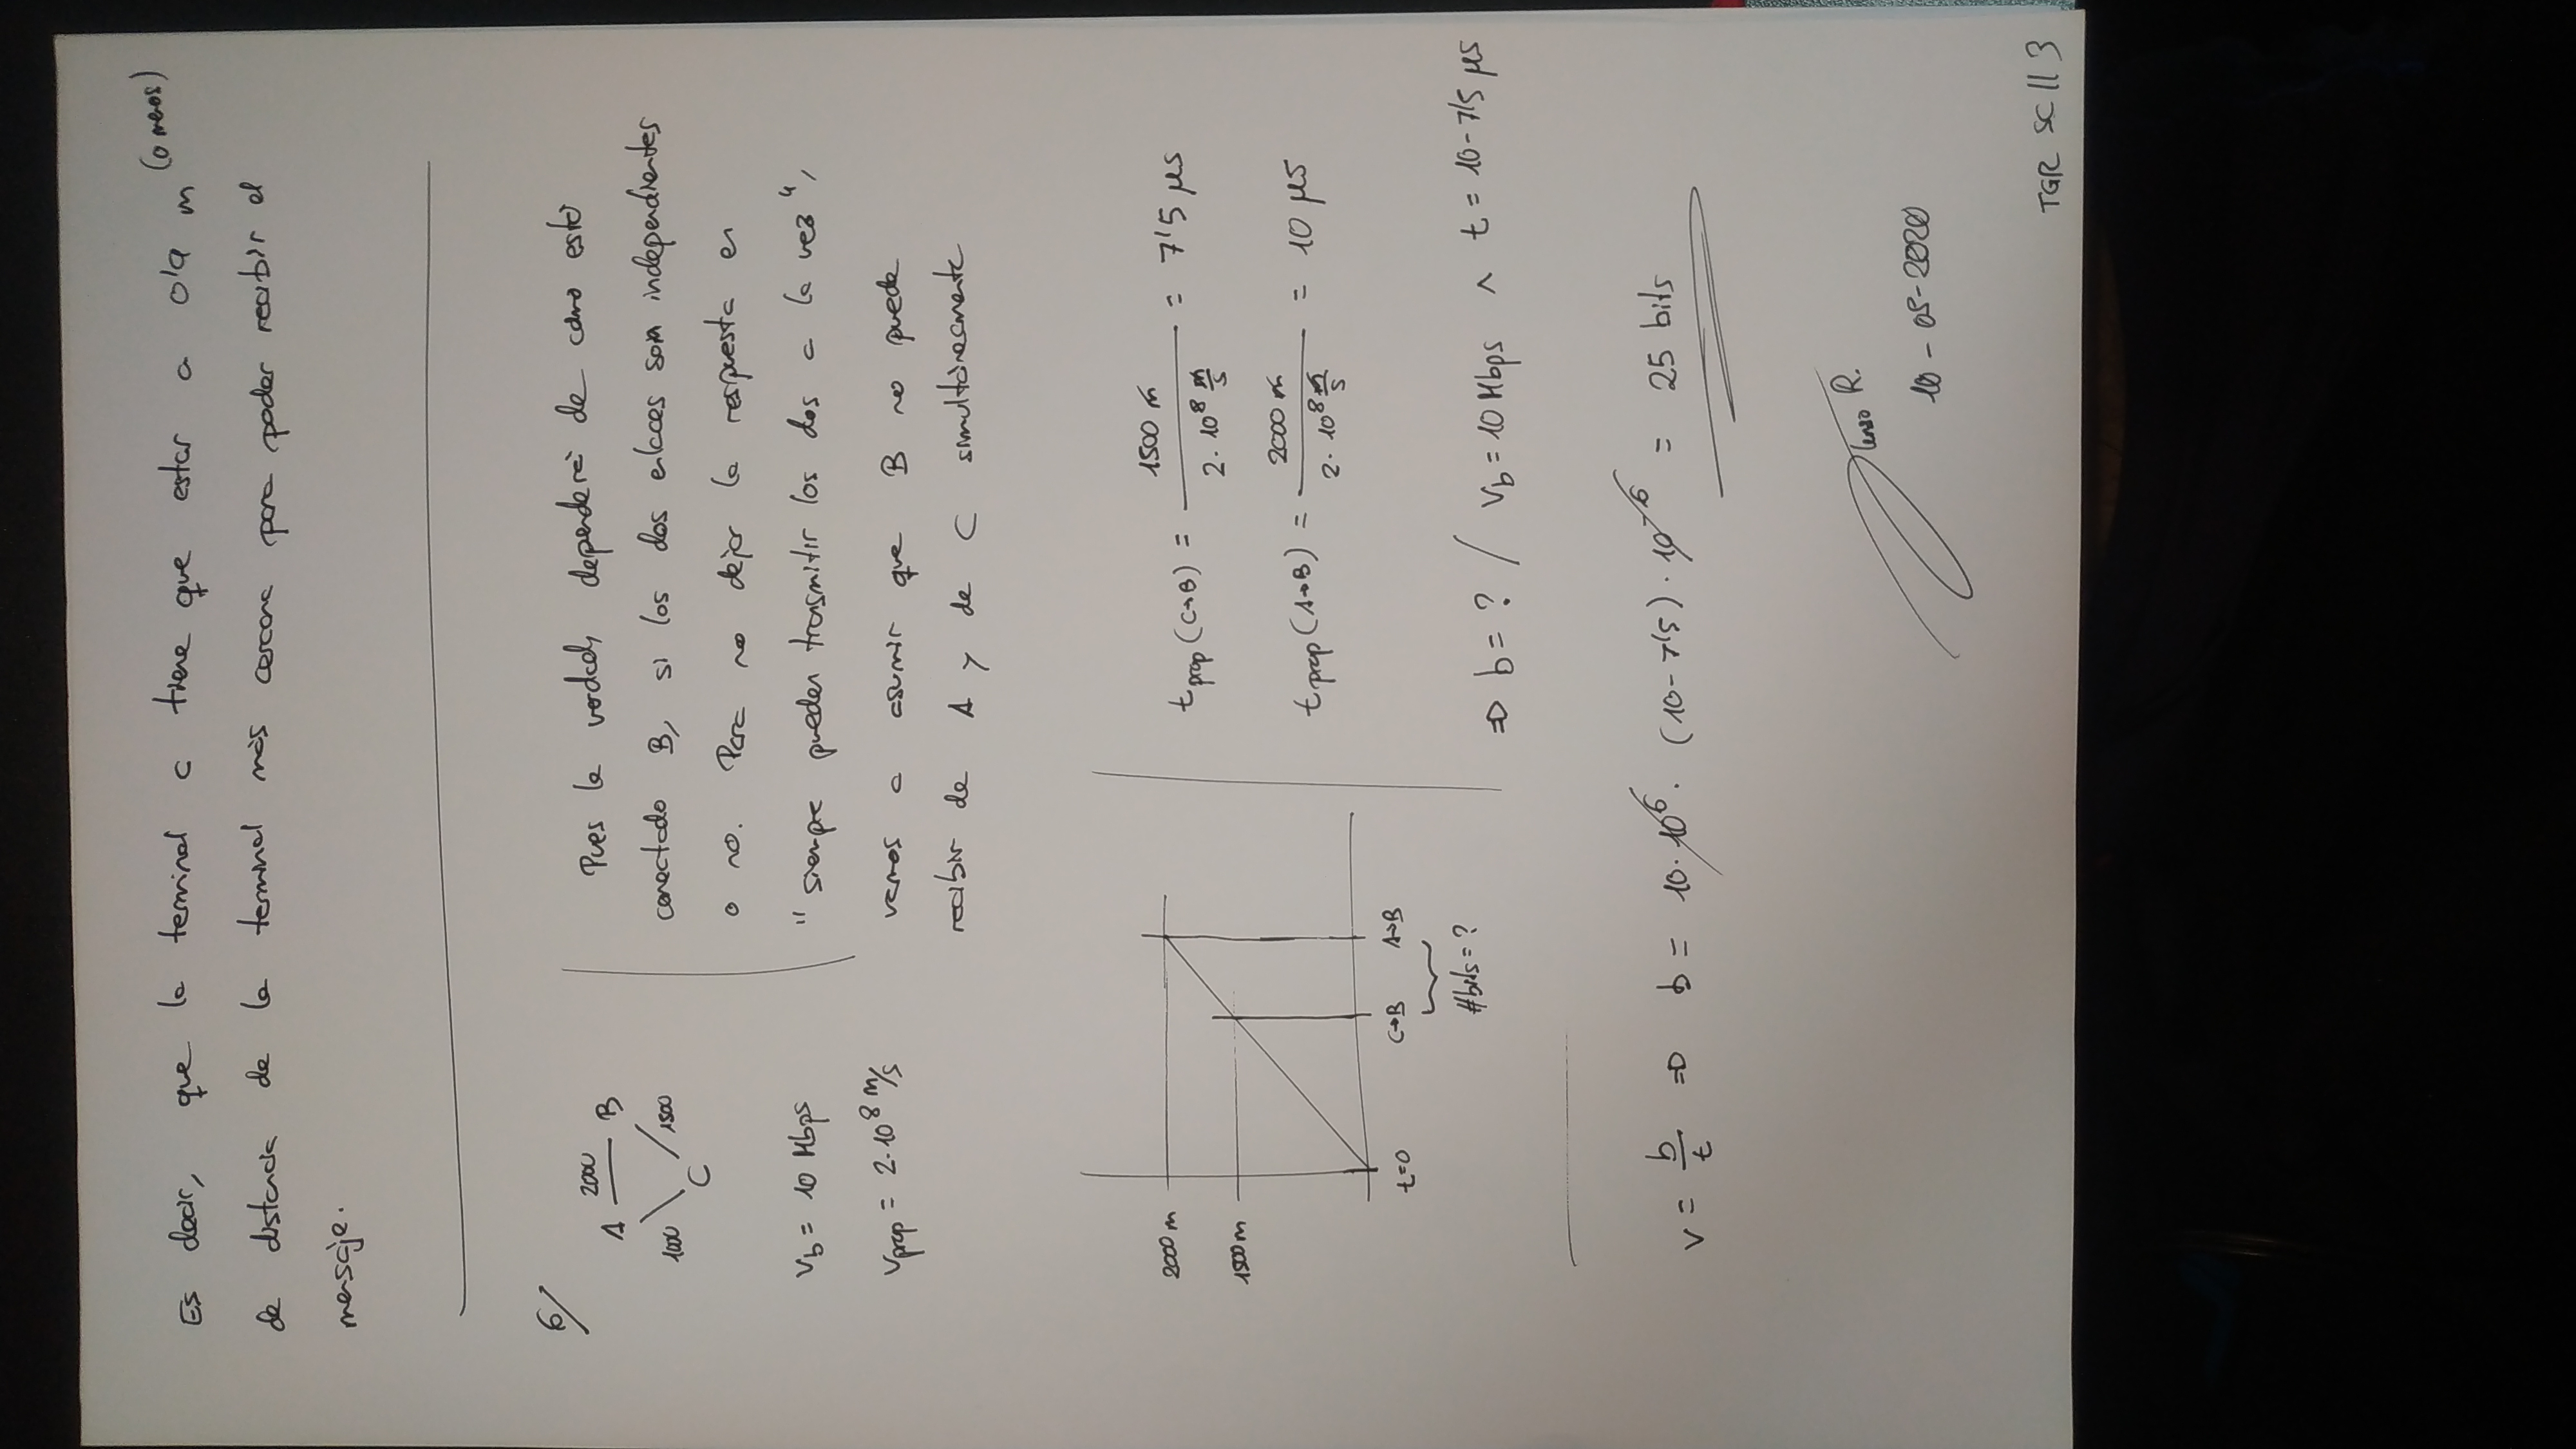 Es decir, que la terminal c tiene que estar a 0'9 m (o menos)
de distancia de la terminal más cercana para poder recibir el
mensaje.
6/
A 2000 B
1000 1500
C
Vb = 10 Mbps
Vprop = 2·10⁸ m/s
Pues la verdad, dependerá de cómo esté
conectado B, si los dos enlaces son independientes
o no. Para no dejar la respuesta en
"siempre pueden transmitir los dos a la vez",
vamos a asumir que B no puede
recibir de A y de C simultáneamente
2000 m
1500 m
t=0 C→B A→B
#bits = ?
tprop (C→B) = 1500 m / 2·10⁸ m/s = 7'5 µs
tprop (A→B) = 2000 m / 2·10⁸ m/s = 10 µs
⇒ b = ? / Vb = 10 Mbps ∧ t = 10 - 7'5 µs
v = b/t ⇒ b = 10·10⁶·(10-7'5)·10⁻⁶ = 25 bits
R.
10-05-2020
TGR SC || 3